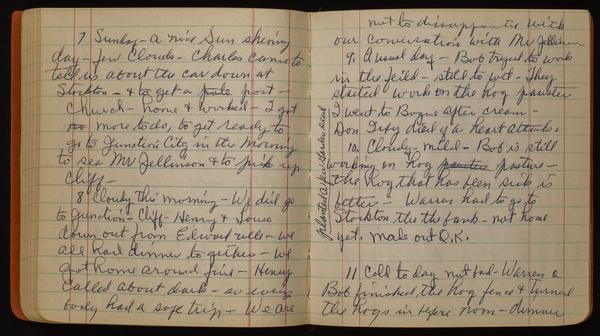 7 Sunday - A nice Sun shining
day - few Clouds - Charles came to
tell us about the car down at
Stockton - & to get a pule post -
Church - home & worked - I got
more to do, to get ready to
go to Junction City in the Morning
to see Mr Jellinson & to pick up
Cliff -
8 Cloudy this morning - We did go
to Junction - Cliff - Henry &
down out from Edwardsville - We
all had dinner to gether - We
got home around five - Henry
Called about dark - so every
body had a safe trip - We are
not to dissappointed with
our conversation with Mr Jellison
9. A usual day - Bob tryed to work
in the feild - still to wet - They
started work on the hog pasture
I went to Bogue after cream -
Don died of a heart attack.
10. Cloudy - mild - Bob is still
working on hog pasture -
the hog that has been sick is
better - Warren had to go to
Stockton the the bank - not home
yet. made out O.K.
planted a few garden seed
11 Cold to day not bad - Warren &
Bob finished the hog fence & turned
the hogs in before noon -